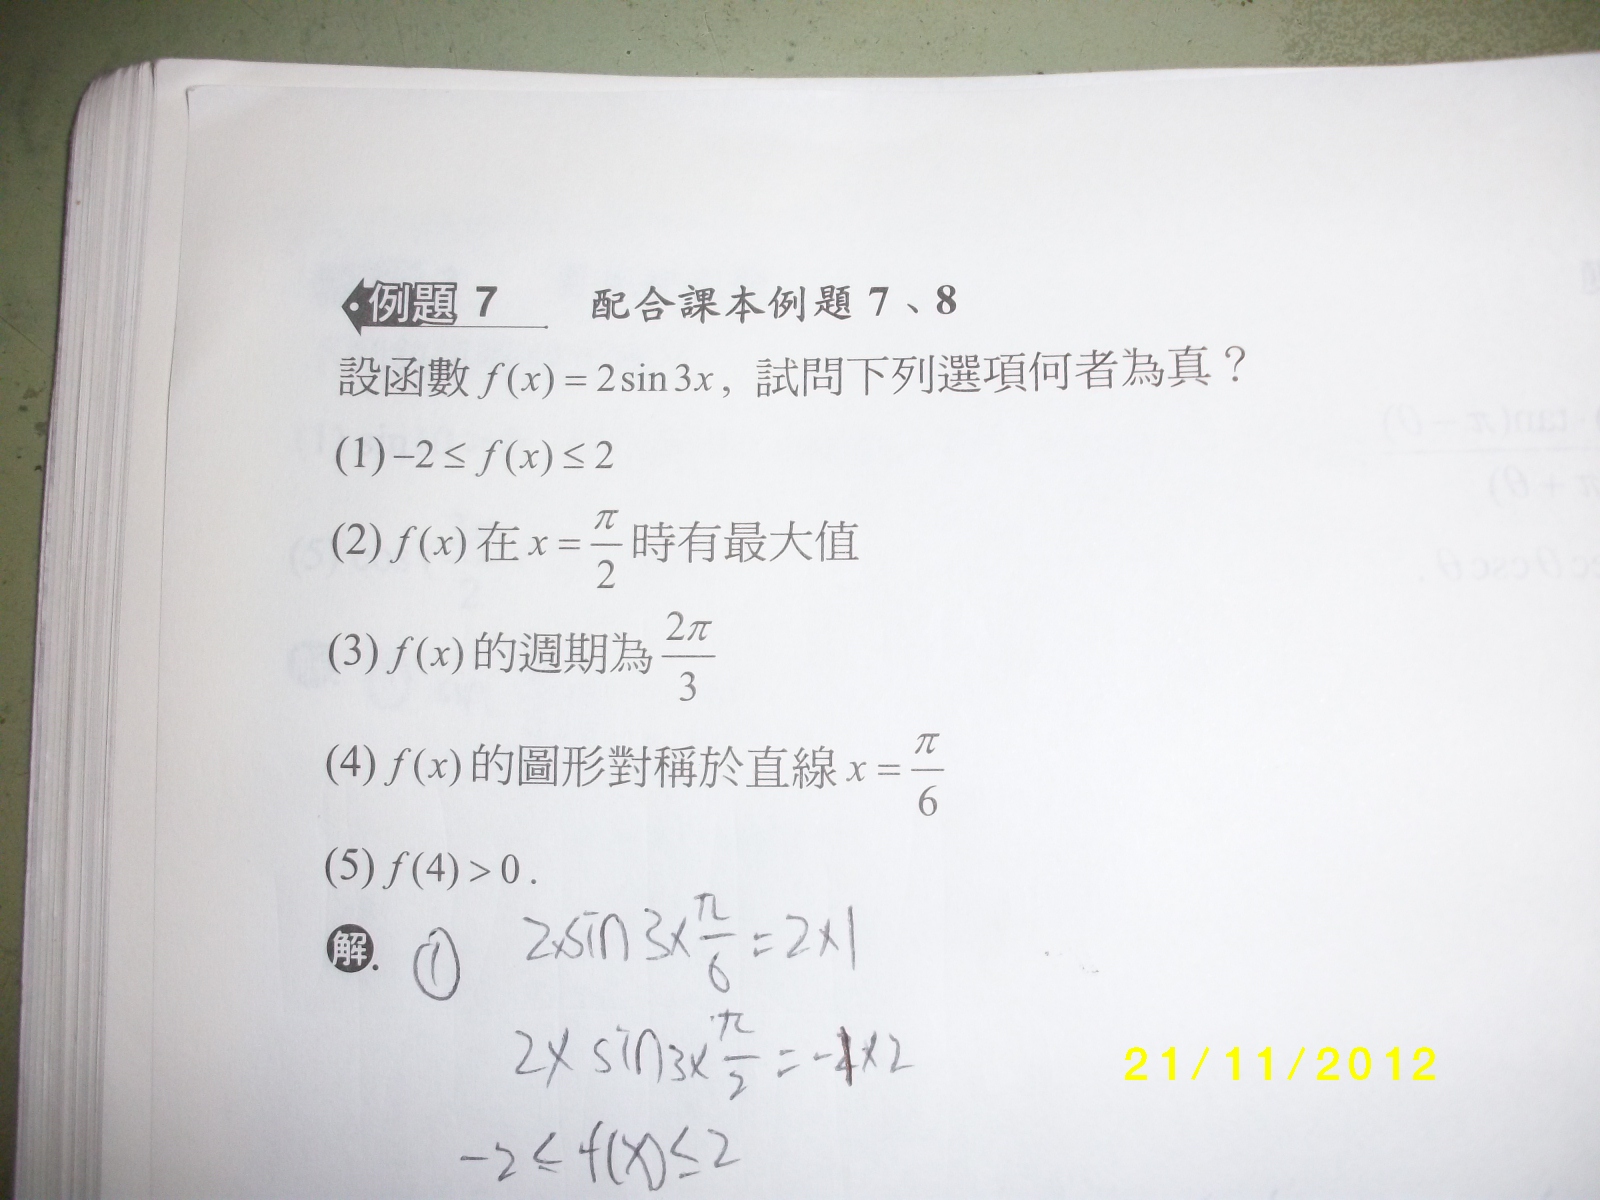 例題 7 配合課本例題 7、8
設函數 f(x) = 2sin3x, 試問下列選項何者為真？
(1) −2 ≤ f(x) ≤ 2
(2) f(x) 在 x = π/2 時有最大值
(3) f(x) 的週期為 2π/3
(4) f(x) 的圖形對稱於直線 x = π/6
(5) f(4) > 0 .
解. ① 2×sin 3×π/6 = 2×1
2× sin 3×π/2 = -1×2
-2 ≤ f(x) ≤ 2
21/11/2012